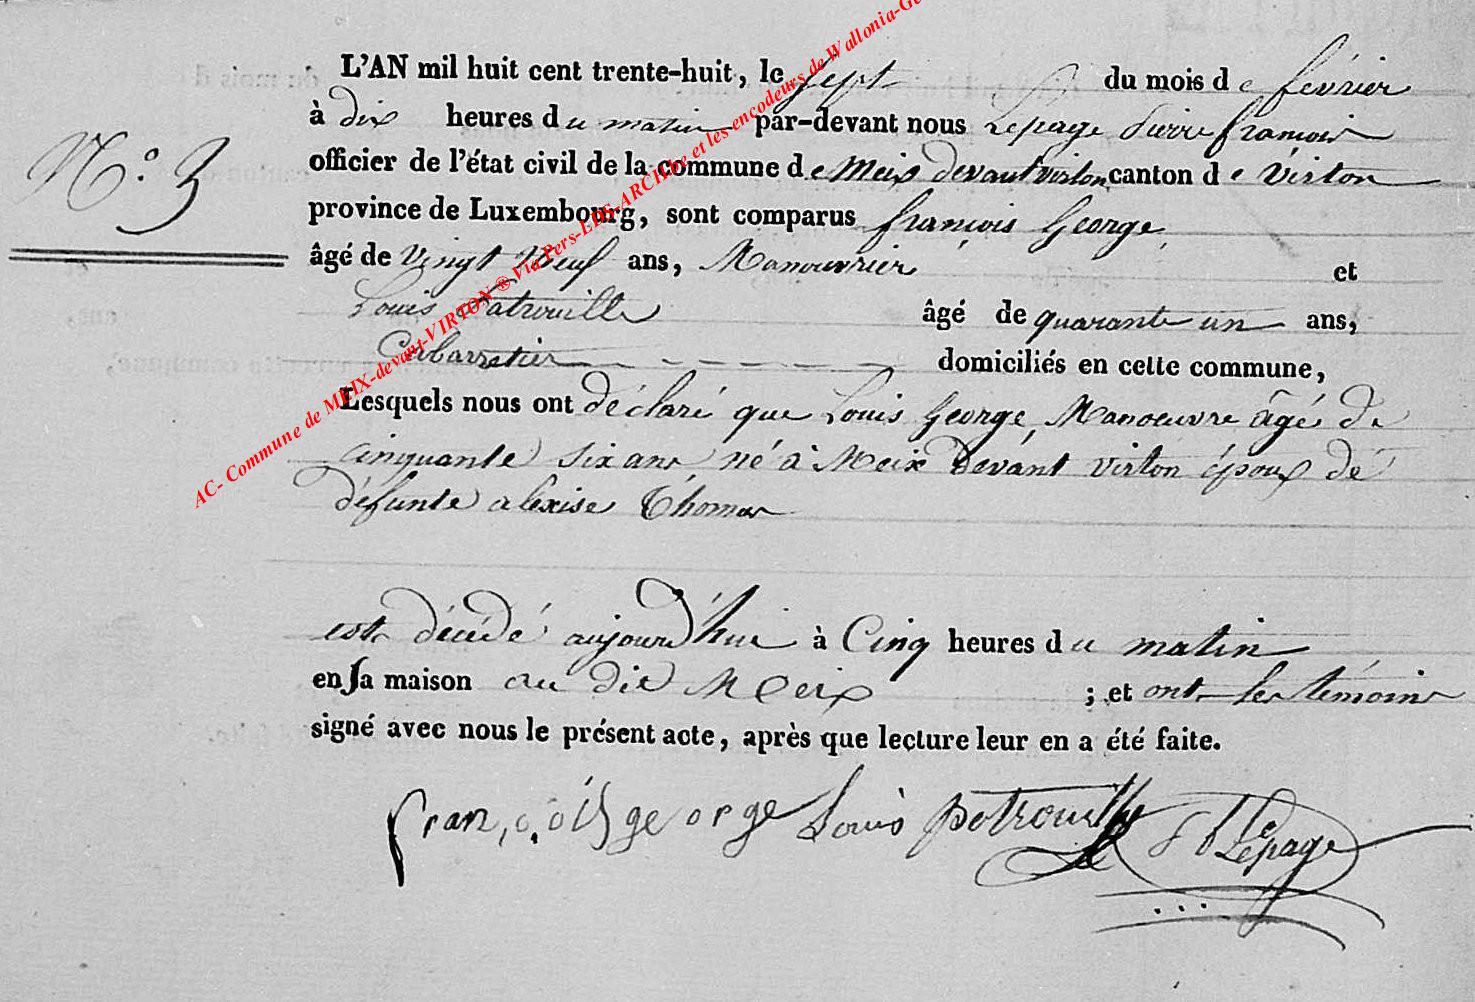 L'AN mil huit cent trente-huit, le sept du mois de février
N.° 3
à dix heures du matin par-devant nous Lepage Pierre françois
officier de l'état civil de la commune de Meix devant virton canton de Virton
province de Luxembourg, sont comparus françois George,
âgé de Vingt Neuf ans, Manouvrier et
Louis Patrouille âgé de quarante un ans,
Cabarretier domiciliés en cette commune,
Lesquels nous ont déclaré que Louis George, Manoeuvre âgé de
cinquante six ans né à Meix Devant virton époux de
défunte alexise Thomas
est décédé aujourd'hui à Cinq heures du matin
en sa maison au dit Meix ; et ont les témoins
signé avec nous le présent acte, après que lecture leur en a été faite.
françois george Louis patrouille Lepage
AC- Commune de MEIX-devant-VIRTON ® Via Pers-LDS-ARCHbe et les encodeurs de Wallonia-Ge